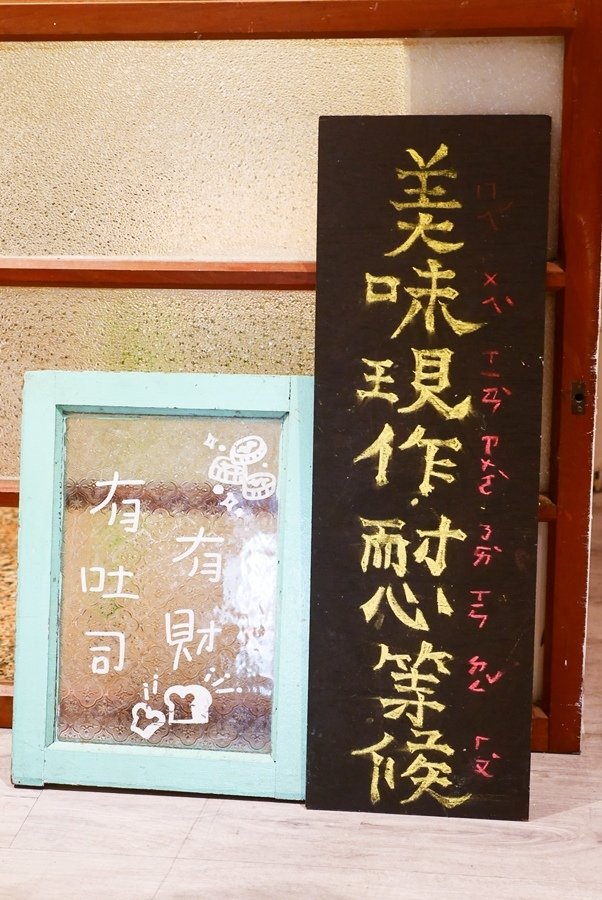 美味現作耐心等候
ㄇㄟˇ ㄨㄟˋ ㄒㄧㄢˋ ㄗㄨㄛˋ ㄋㄞˋ ㄒㄧㄣ ㄉㄥˇ ㄏㄡˋ
有財
有吐司